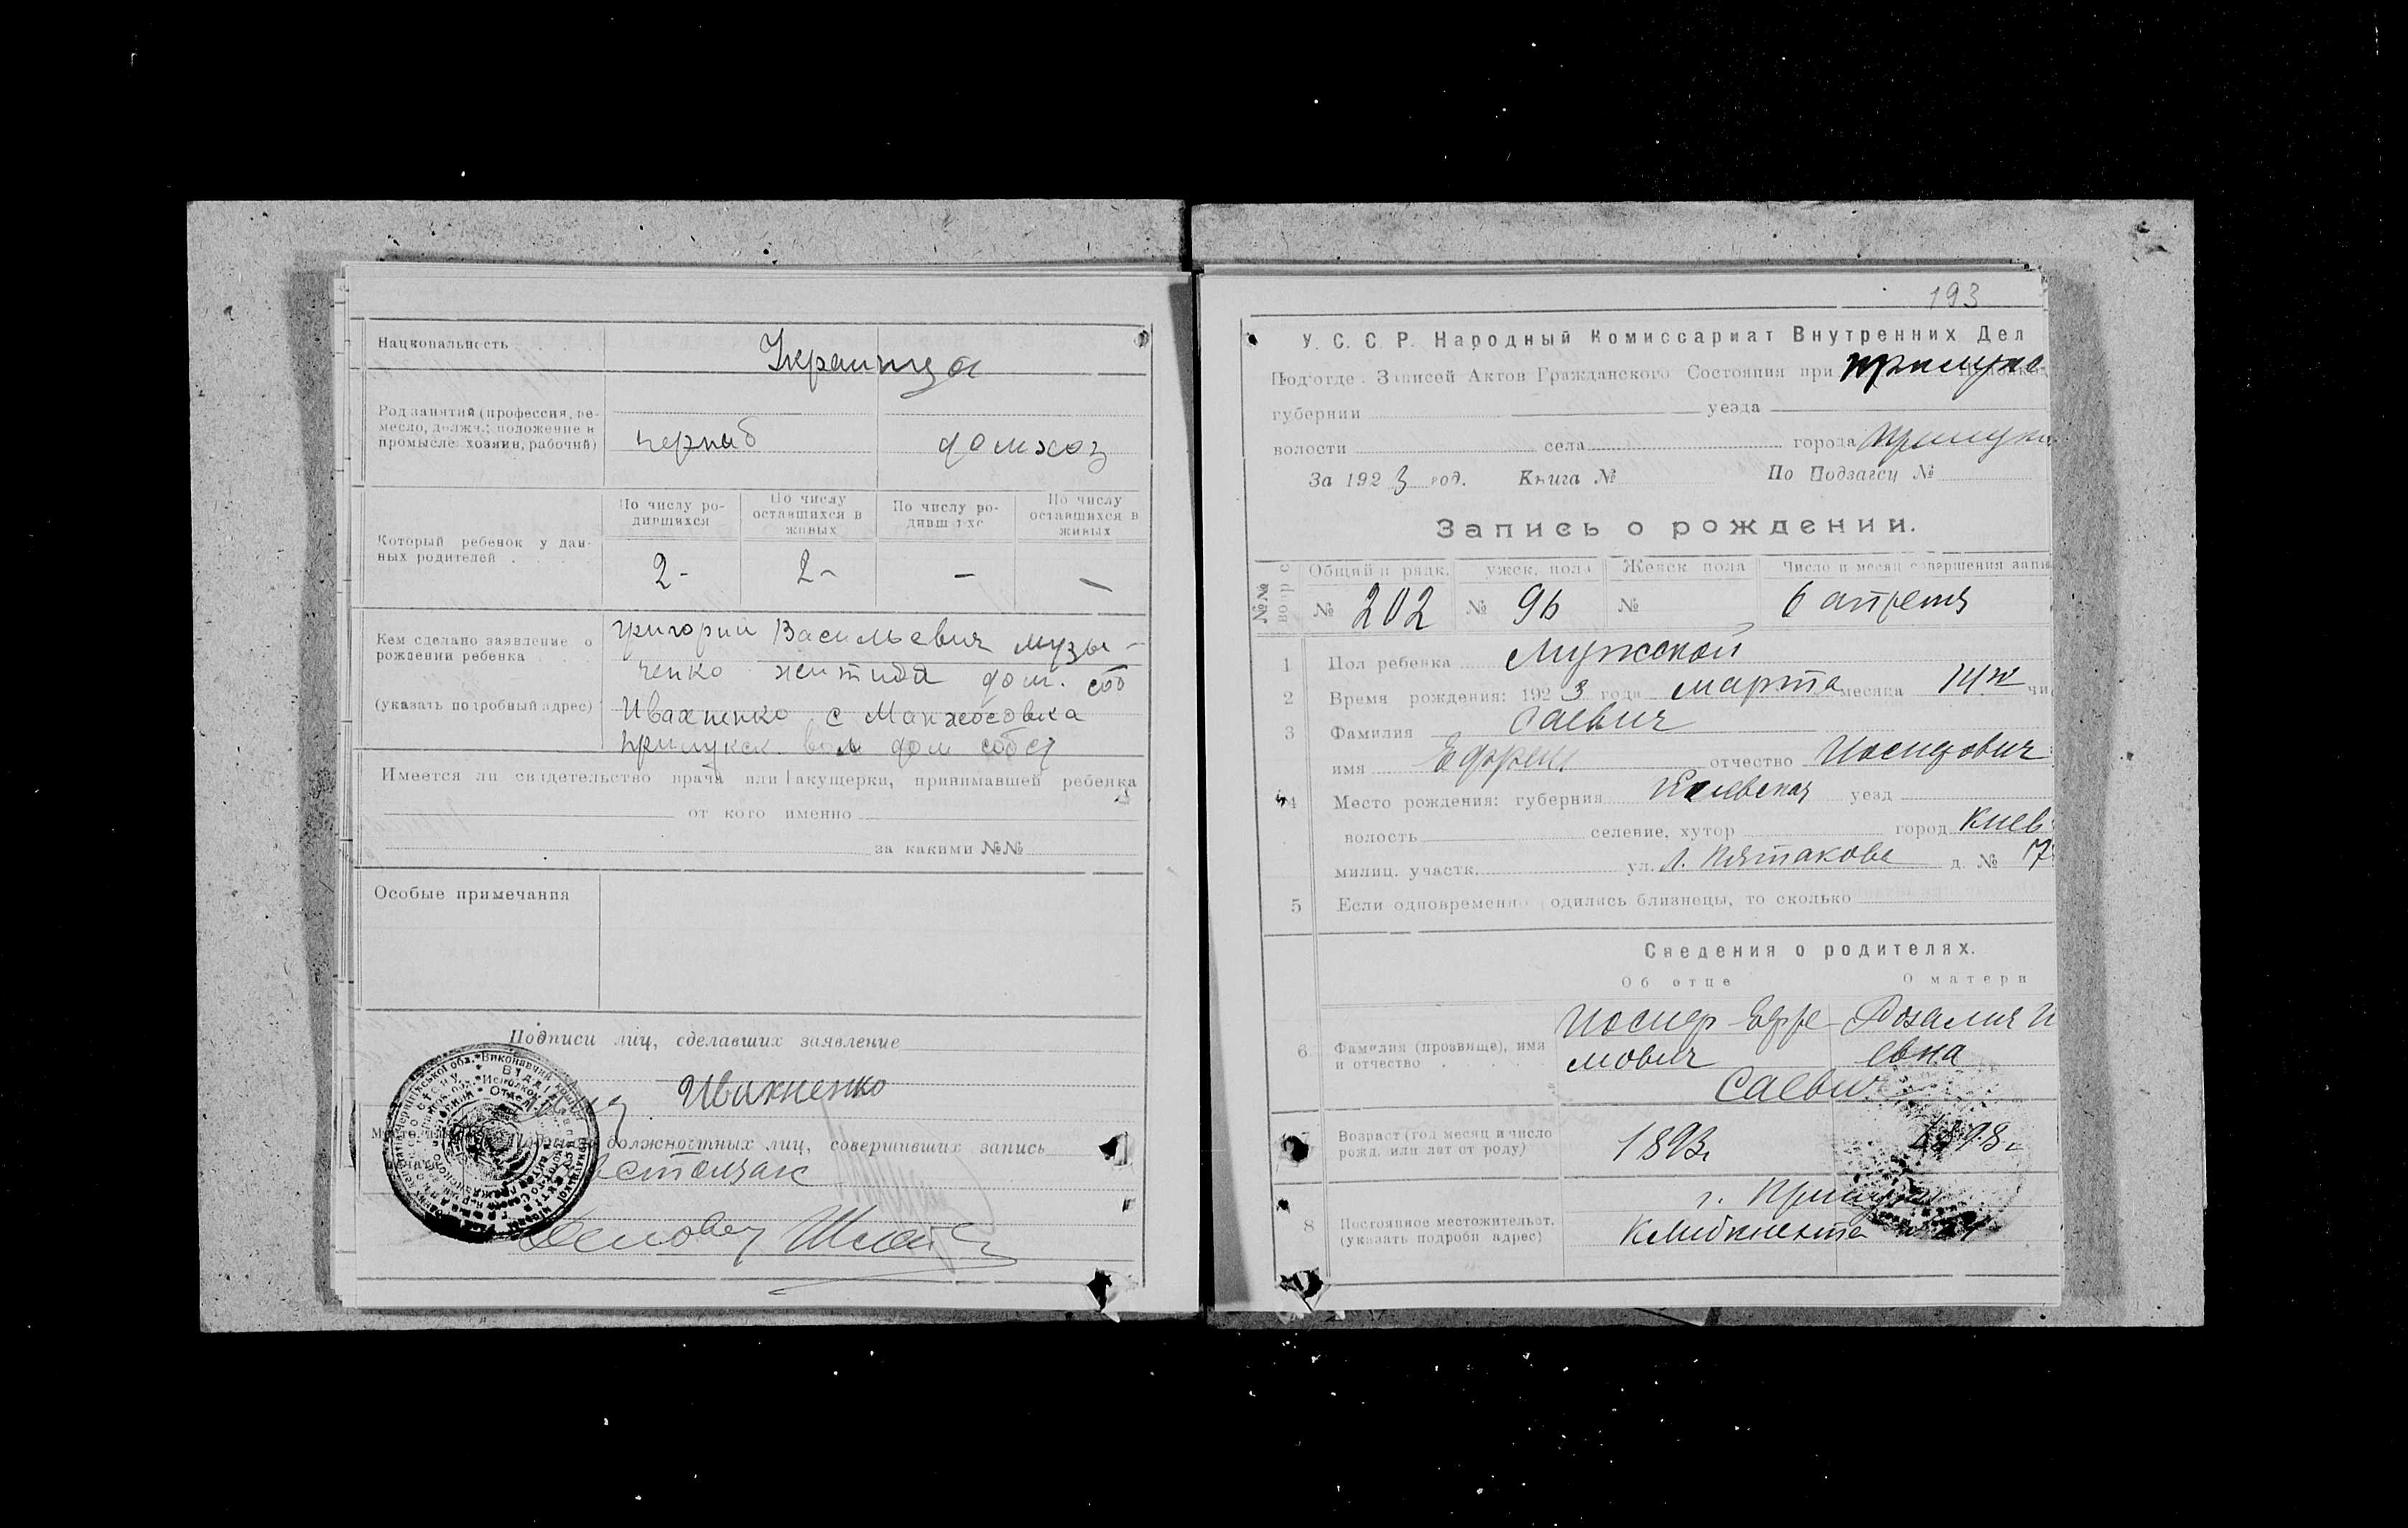 Национальность
Украинца
Род занятий (профессия, ре-
месло, должн.; положение в
промысле: хозяин, рабочий)
чернраб
домхоз
По числу ро-
дившихся
По числу
оставшихся в
живых
По числу ро-
дивш хс
По числу
оставшихся в
живых
Который ребенок у дан-
ных родителей
2 -
2 -
-
-
Кем сделано заявление о
рождении ребенка
(указать подробный адрес)
Григорий Васильевич Музы-
ченко дом. соб
Ивахненко с Манжосовка
Прилукск. вол дом собст
Имеется ли свидетельство врача или акушерки, принимавшей ребенка
от кого именно
за какими №№
Особые примечания
Подписи лиц, сделавших заявление
Ивахненко
Подписи должностных лиц, совершивших запись
193
У. С. С. Р. Народный Комиссариат Внутренних Дел
Под'отде. Записей Актов Гражданского Состояния при Прилукс
губернии уезда
волости села города Прилуки
За 1923 год. Книга № По Подзагсу №
Запись о рождении.
№№ вопрос
Общий п рядк.
ужск. пола
Женск пола
Число и месяц совершения запи
№ 202
№ 96
№
6 апреля
1 Пол ребенка Мужской
2 Время рождения: 1923 года марта месяца 14го чи
3 Фамилия Саевич
имя Ефрем отчество Иосифович
4 Место рождения: губерния Киевская уезд
волость селение, хутор город Киев
милиц. участк. ул. Л. Пятакова д. № 7
5 Если одновременно родились близнецы, то сколько
Сведения о родителях.
Об отце
О матери
6 Фамилия (прозвище), имя
и отчество
Иосиф Ефре-
мович
Розалия И
евна
Саевич
7 Возраст (год месяц и число
рожд. или лет от роду)
1893г
1898г
8 Постоянное местожительст.
(указать подробн адрес)
г. Прилуки
К Либкнехта